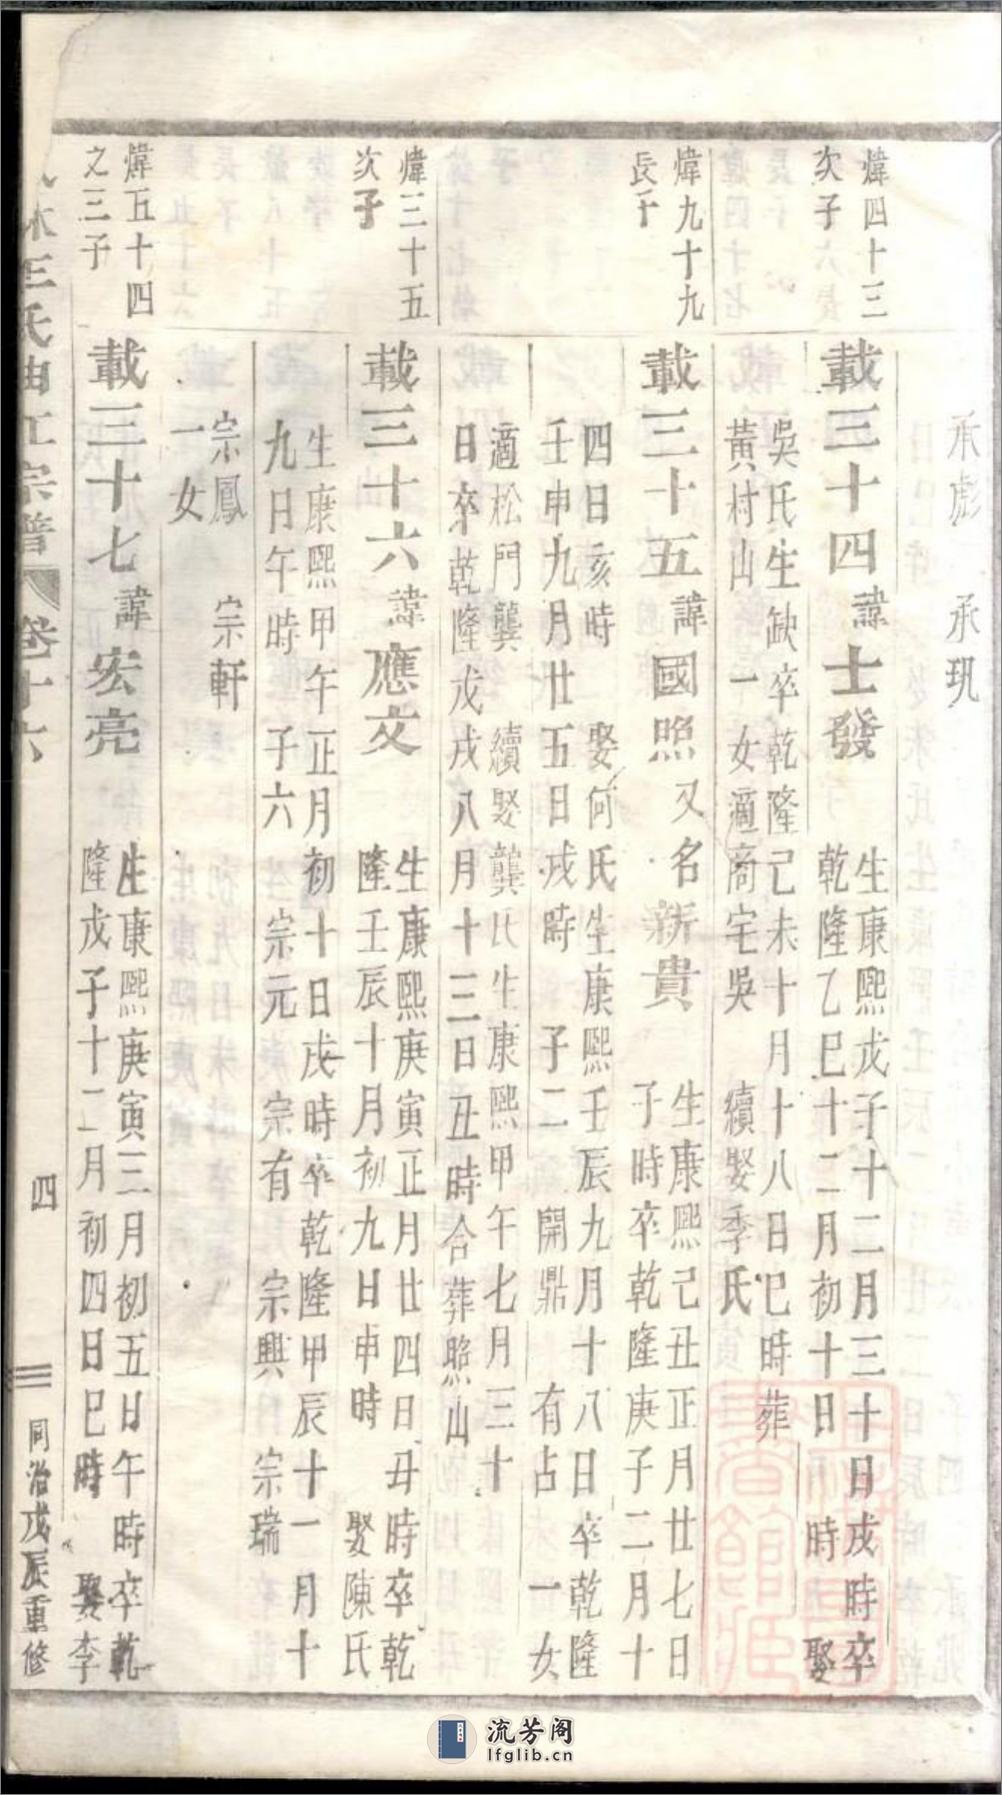 承彪 承玑
煒四十三
次子
載三十四諱士發
生康熙戊子十二月三十日戌時卒
乾隆乙巳十二月初十日 時 娶
吳氏生缺卒乾隆己未十月十八日巳時葬
黃村山 一女適商宅吳 續娶季氏
煒九十九
長子
載三十五諱國照又名新貴
生康熙己丑正月廿七日
子時卒乾隆庚子二月十
四日亥時 娶何氏生康熙壬辰九月十八日卒乾隆
壬申九月廿五日戌時 子二 開鼎 有占 一女
適松門龔 續娶龔氏生康熙甲午七月三十
日卒乾隆戊戌八月十三日丑時合葬照山
煒三十五
次子
載三十六諱應文
生康熙庚寅正月廿四日丑時卒乾
隆壬辰十月初九日申時 娶陳氏
生康熙甲午正月初十日戌時卒乾隆甲辰十一月十
九日午時 子六 宗元 宗有 宗興 宗瑞
宗鳳 宗軒
一女
煒五十四
之三子
載三十七諱宏亮
生康熙庚寅三月初五日午時卒乾
隆戊子十二月初四日巳時 娶李
林王氏曲江宗譜 卷十六
四
同治戊辰重修
流芳阁
lfglib.cn